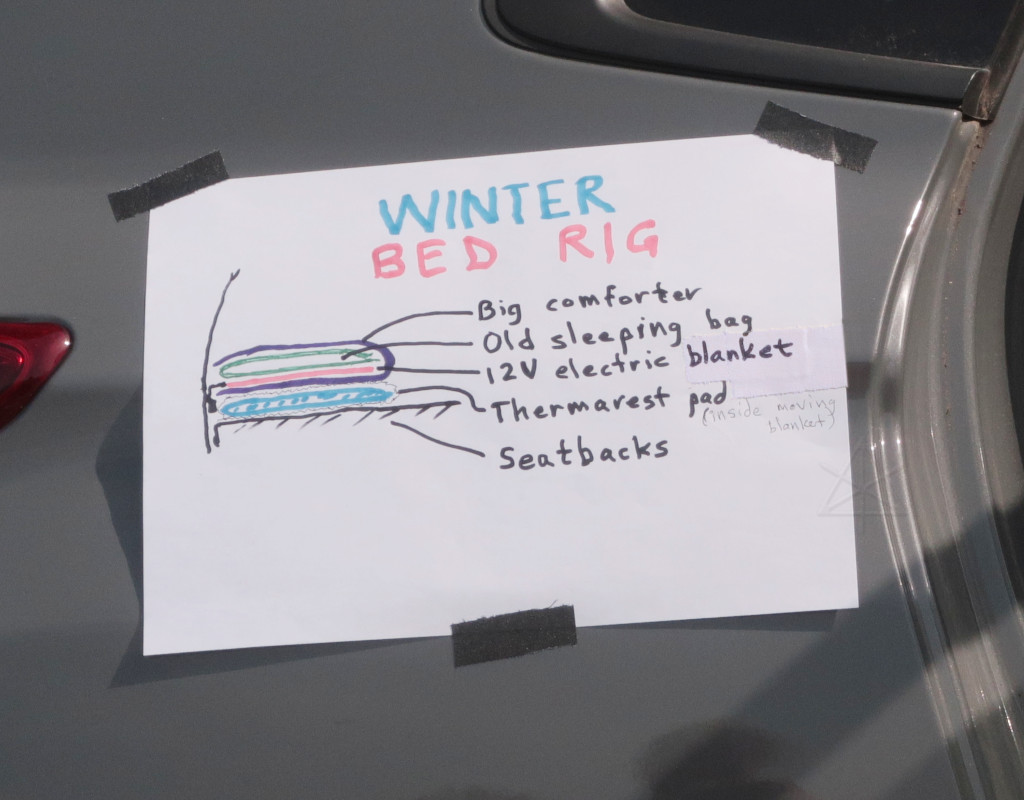 WINTER
BED RIG
Big comforter
Old sleeping bag
12V electric blanket
Thermarest pad
(inside moving
blanket)
Seatbacks